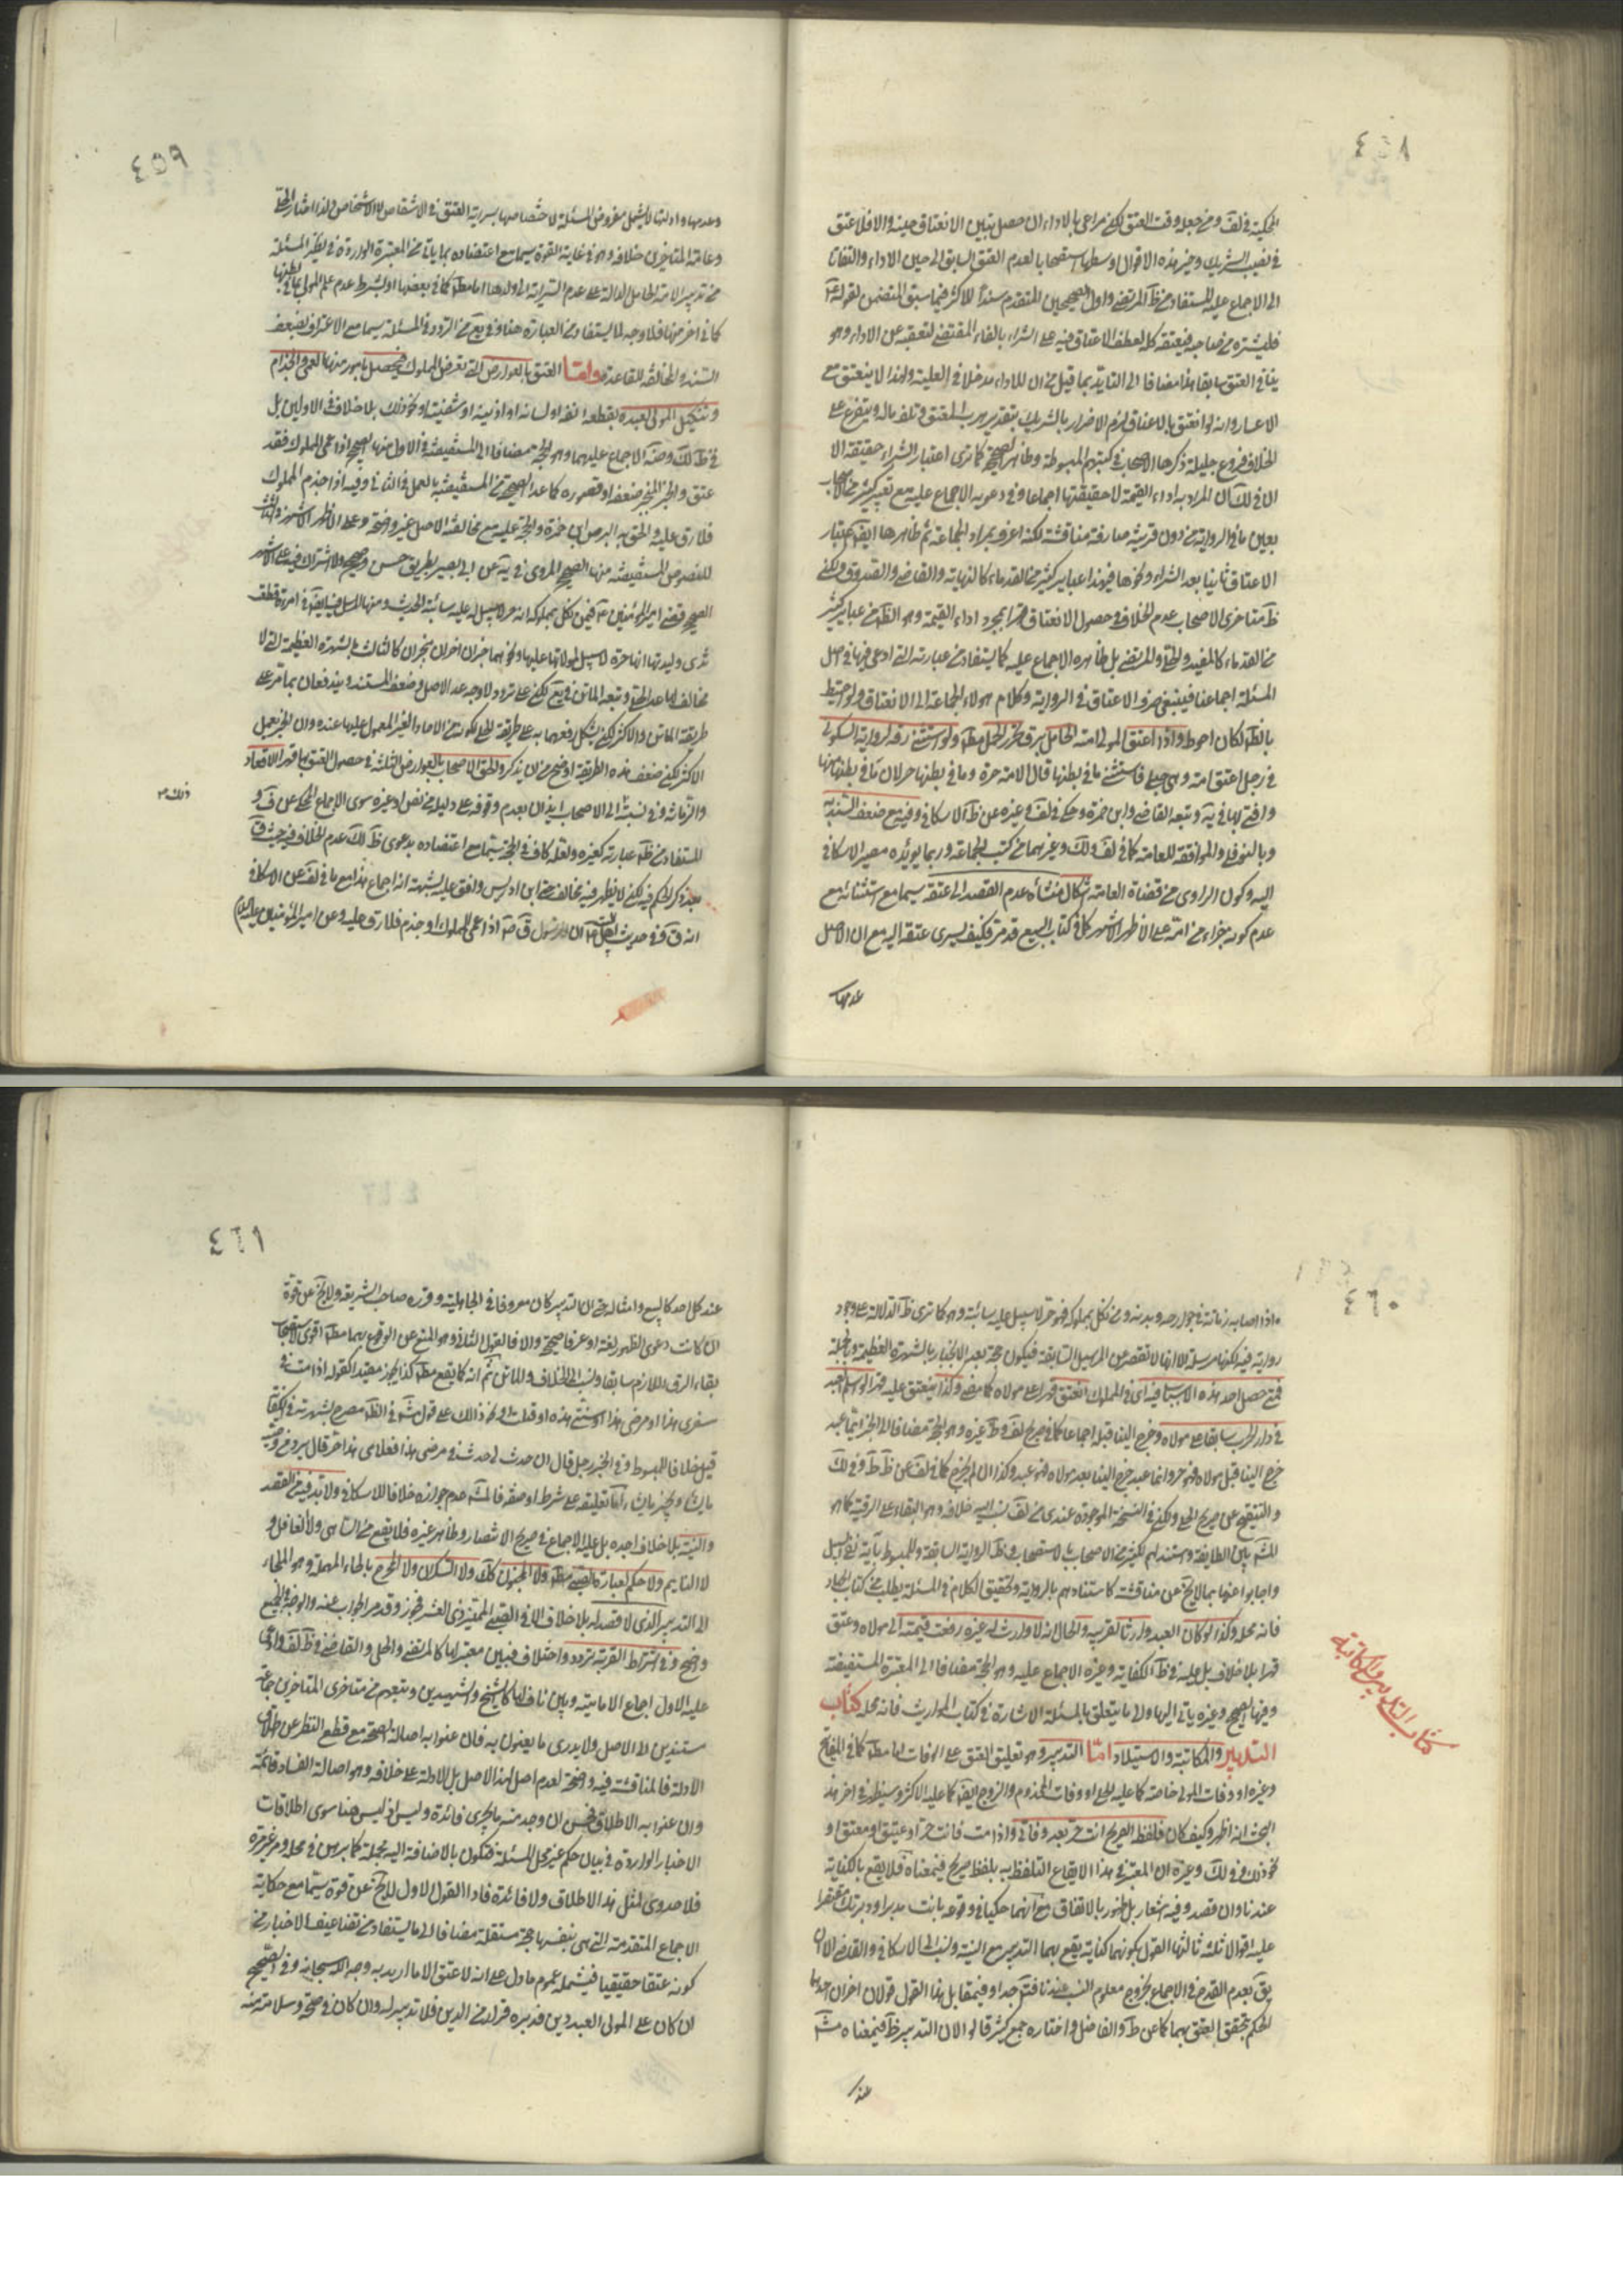 ٤٥٨
الحكية في لف ومن جعل وقت العتق لكنه مراعى بالاداء ان حصل تبين الانعتاق حينه والا فلا عتق
في نصيب الشريك وخير هذه الاقوال اوسطها استصحابا لعدم العتق السابق الى حين الاداء والتفاتا
الى الاجماع عليه المستفاد من ظ المرتضى واول الصحيحين المتقدم سندا للاكثر فيما سبق المتضمن لقوله ع
فليشتره من صاحبه فيعتقه كله لعطف الاعتاق فيه على الشراء بالفاء المقتضى لتعقبه عن الاداء وهو
ينافي العتق سابقا هذا مضافا الى التايد بما قيل من ان للاداء مدخلا في العلية ولهذا لا ينعتق مع
الاعسار وانه لو انعتق بالاعتاق لزم الاضرار بالشريك بتقدير هرب المعتق وتلف ماله ويتفرع على
الخلاف فروع جليلة ذكرها الاصحاب في كتبهم المبسوطة وظاهر الصحيح كما ترى اعتبار الشراء حقيقة الا
ان في لك ان المراد به اداء القيمة لا حقيقتها اجماعا وفي دعويه الاجماع عليه مع تعبير كثير من الاصحاب
بعين ما في الرواية من دون قرينة صارفة مناقشة لكنه اعرف بمراد الجماعة ثم ظاهرها ايضا اعتبار
الاعتاق ثانيا بعد الشراء ونحوها فيهذا عباير كثير من القدماء كالنهاية والقاضى والصدوق ولكن
ظ متاخرى الاصحاب عدم الخلاف في حصول الانعتاق قهرا بمجرد اداء القيمة وهو الظ من عباير كثير
من القدماء كالمفيد والحلى والمرتضى بل ظاهره الاجماع عليه كما يستفاد من عبارته التي ادعى فيها في اصل
المسئلة اجماعنا فينبغي صرف الاعتاق في الرواية وكلام هولاء الجماعة الى الانعتاق ولو احتيط
بالظ لكان احوط واذا اعتق المولى امته الحامل برق تحرر الحمل مط ولو استثنى رقه لرواية السكونى
في رجل اعتق امة وهي حبلى فاستثنى ما في بطنها قال الامة حرة وما في بطنها حر لان ما في بطنها منها
وافتى بها في ية وتبعه القاضي وابن حمزة وحكى في لف وغيره عن ظ الاسكافي وفيه مع ضعف السند به
وبالنوفلى والموافقة للعامة كما في لف ولك وغيرهما من كتب الجماعة وربما يؤيده مصير الاسكافي
اليه وكون الراوى من قضاة العامة اشكال منشاه عدم القصد الى عتقه سيما مع استثنائه مع
عدم كونه جزاء من امه على الاظهر الاشهر كما في كتاب البيع قد مر فكيف يسرى عتقه اليه مع ان الاصل
عدمها
٤٥٩
وعدمها وادلتها لا يشمل مفروض المسئلة لاختصاصها بسراية العتق في الاشقاص لا الاشخاص ولذا اختار الحلى
وعامة المتاخرين خلافه وهو في غاية القوة سيما مع اعتضاده بما ياتي من المعتبرة الواردة في نظير المسئلة
من تدبير الامة الحامل الدالة على عدم السراية الى ولدها اما مط كما في بعضها او بشرط عدم علم المولى بما في بطنها
كما في اخر منها فلا وجه لما يستفاد من العبارة هنا وفي يع من التردد في المسئلة سيما مع الاعتراف بضعف
السند والمخالفة للقاعدة واما العتق بالعوارض التى تعرض المملوك فيحصل بامور منها العمى والجذام
وتنكيل المولى لعبده بقطعه انفه او لسانه او اذنيه او شفتيه او نحو ذلك بلا خلاف في الاولين بل
في ظ لك وضة الاجماع عليهما وهو الحجة مضافا الى المستفيضة في الاول منها الصحيح اذا عمى المملوك فقد
عتق والخبر المنجبر ضعفه او قصوره كما عدا الصحيح من المستفيضة بالعمل في الثاني وفيه اذا جذم المملوك
فلا رق عليه والحق به البرص ابن حمزة والحجة عليه مع مخالفة الاصل غير واضحة وعلى الاظهر الاشهر في الثالث
للنصوص المستفيضة منها الصحيح المروى في ية عن ابي بصير بطريق حسن وصحيح ولا اشتراك فيه على الاشهر
الصحيح قضى امير المؤمنين ع فيمن نكل بمملوكه انه حر لا سبيل له عليه سائبة الحديث ومنها المرسل فيه ايضا في امرءة قطعت
ثدى وليدتها انها حرة لا سبيل لمولاتها عليها ونحوهما خبران اخران منجبران كالثالث بالشهرة العظيمة التي لا
مخالف لها عدا الحلى وتبعه الماتن في يع لكن على تردد ولا وجه عدا الاصل وضعف المستند ويندفعان بما مر على
طريقة الماتن والاكثر لكن يشكل دفعهما به على طريقة الحلى لكونه من الاحاد الغير المعمول عليها عنده وان انجبر بعمل
الاكثر لكن ضعف هذه الطريقة اوضح من ان يذكر والحق الاصحاب بالعوارض الثلثة في حصول العتق بها قهرا الاقعاد
والزمانة وفي نسبته الى الاصحاب ايذان بعدم وقوفه على دليله من نص او غيره سوى الاجماع المحكى عن ف و
ذلك صح
المستفاد من ظ عبارته كغيره ولعله كاف في الحجة سيما مع اعتضاده بدعوى ظ لك عدم الخلاف فيه حيث ق
بعد ذكر الحكم فيه لكن لا يظهر فيه مخالف حتى ابن ادريس وافق عليه لشبهة انه اجماع هذا مع ما في لف عن الاسكافي
انه ق وفي حديث اهل البيت ع ان رسول ق ص اذا عمى المملوك او جذم فلا رق عليه وعن امير المؤمنين عليه السلام
٤٦٠
واذا اصابه زمانة في جوارحه وبدنه ومن نكل بمملوكه فهو حر لا سبيل عليه سائبة وهو كما ترى ظ الدلالة على وجود
رواية فيه لكونها مرسلة الا انها لا تقصر عن المراسيل السابقة فيكون حجة بعد الانجبار بالشهرة العظيمة وبالجملة
فمتى حصل احد هذه الاسباب فيه اى في المملوك انعتق قهرا على مولاه كما مضى وكذا ينعتق عليه قهرا لو اسلم العبد
في دار الحرب سابقا على مولاه وخرج الينا قبله اجماعا كما في صريح لف وظ غيره وهو الحجة مضافا الى الخبر ايما عبد
خرج الينا قبل مولاه فهو حر وانما عبد خرج الينا بعد مولاه فهو عبد وكذا ان لم يخرج كما في لف عن ظ ط وفي لك
والتنقيح عن صريح الحلى ولكن في النسخة الموجودة عندى من لف نسب اليه خلافه وهو البقاء على الرقية كما هو
المش بين الطايفة ومستندهم لكثير من الاصحاب بالاستصحاب وظ الرواية السابقة وللمبسوط باية نفى السبيل
واجابوا عنها بما لا يخ عن مناقشة كاستنادهم بالرواية وتحقيق الكلام في المسئلة يطلب من كتاب الجهاد
فانه محله وكذا لو كان العبد وارثا لقريبه والحال انه لا وارث له غيره دفعت قيمته الى مولاه وعتق
قهرا بلا خلاف بل عليه في ظ الكفاية وغيره الاجماع عليه وهو الحجة مضافا الى المعتبرة المستفيضة
وفيها الصحيح وغيره ياتي اليها والى ما يتعلق بالمسئلة الاشارة في كتاب المواريث فانه محله كتاب
التدبير والمكاتبة والاستيلاد اما التدبير وهو تعليق العتق على الوفات اما مط كما في المفاتيح
كتاب التدبير والمكاتبة
وغيره او وفات المولى خاصة كما عليه الحلى او وفات المخدوم والزوج ايضا كما عليه الاكثر وسيظهر في اخر هذا
البحث انه اظهر وكيف كان فلفظه الصريح انت حر بعد وفاتي واذا مت فانت حر او عتيق او معتق او
نحو ذلك وفي لك وغيره ان المعتبر في هذا الايقاع التلفظ به بلفظ صريح فيمعناه فلا يقع بالكناية
عندنا وان قصد وفيه اشعار بل ظهور بالاتفاق مع انهما حكيا في وقوعه بانت مدبر او دبرتك مقتصرا
عليه اقوالا ثلثة ثالثها القول بكونهما كناية يقع بهما التدبير مع النية ونسب الى الاسكافي والقاضى الا ان
يق بعدم القدح في الاجماع بخروج معلوم النسب عندنا فتدبر جدا وفيمقابل هذا القول قولان اخران احدهما
الحكم بتحقق العتق بهما كما عن ط والفاضل واختاره جمع كثر قالوا لان التدبير ظ فيمعناه مش
عند
٤٦١
عند كل احد كالبيع وامثاله حتى ان التدبير كان معروفا في الجاهلية وقرره صاحب الشريعة ولا يخ عن قوة
ان كانت دعوى الظهور لغة او عرفا صحيحة والا فالقول الثاني وهو المنع عن الوقوع بهما مط اقوى لاستصحاب
بقاء الرق اللازم سابقا ونسب الى الخلاف والماتن ثم انه كما يقع مط كذا يجوز مقيدا كقوله اذا مت في
سفرى هذا او مرضى هذا او سنتى هذه او قتلت او نحو ذلك على قول مش في الظ مصرح بشهرته في الكفاية
قيل خلافا للمبسوط وفي الخبر رجل قال ان حدث لى حدث في مرضى هذا فغلامى هذا حر قال يرد من وصيته
ما يشاء ويجيز ما يشاء اما تعليقه على شرط او صفة فالمش عدم جوازه خلافا للاسكافي ولا بد فيه من القصد
والنية بلا خلاف اجده بل عليه الاجماع في صريح الانتصار وظاهر غيره فلا يقع من الساهى ولا الغافل و
لا النايم ولا حكم لعبارة الصبى مط ولا المجنون كك ولا السكران ولا المحرج بالحاء المهملة وهو الملجاء
الى التدبير الذى لا قصد له بلا خلاف الا في الصبى المميز ذى العشر فجوز وقد مر الجواب عنه والوجه في الجميع
واضح وفي اشتراط القربة تردد واختلاف فبين معتبر لها كالمرتضى والحلى والقاضى وظ لف وادعى
عليه الاول اجماع الامامية وبين ناف لها كالشيخ والشهيدين وتبعهم من متاخرى المتاخرين جماعة
مستندين الى الاصل ولا يدرى ما يعنون به فان عنوا به اصالة الصحة مع قطع النظر عن اطلاق
الادلة فالمناقشة فيه واضحة لعدم اصل لهذا الاصل بل الادلة على خلافه وهو اصالة الفساد قائمة
وان عنوا به الاطلاق فحسن ان وجد منه ما يجرى فائدة وليس اذ ليس هنا سوى اطلاقات
الاخبار الواردة في بيان حكم غير محل المسئلة فتكون بالاضافة اليه مجملة كما برهن في محله ومر غير مرة
فلا جدوى لمثل هذا الاطلاق ولا فائدة فاذا القول الاول لا يخ عن قوة سيما مع حكاية
الاجماع المتقدمة التي هي بنفسها حجة مستقلة مضافا الى ما يستفاد من تضاعيف الاخبار من
كونه عتقا حقيقيا فيشمله عموم ما دل على انه لا عتق الا ما اريد به وجه الله سبحانه وفي الصحيح
ان كان على المولى العبد دين فدبره فرارا من الدين فلا تدبير له وان كان في صحة وسلامة منه